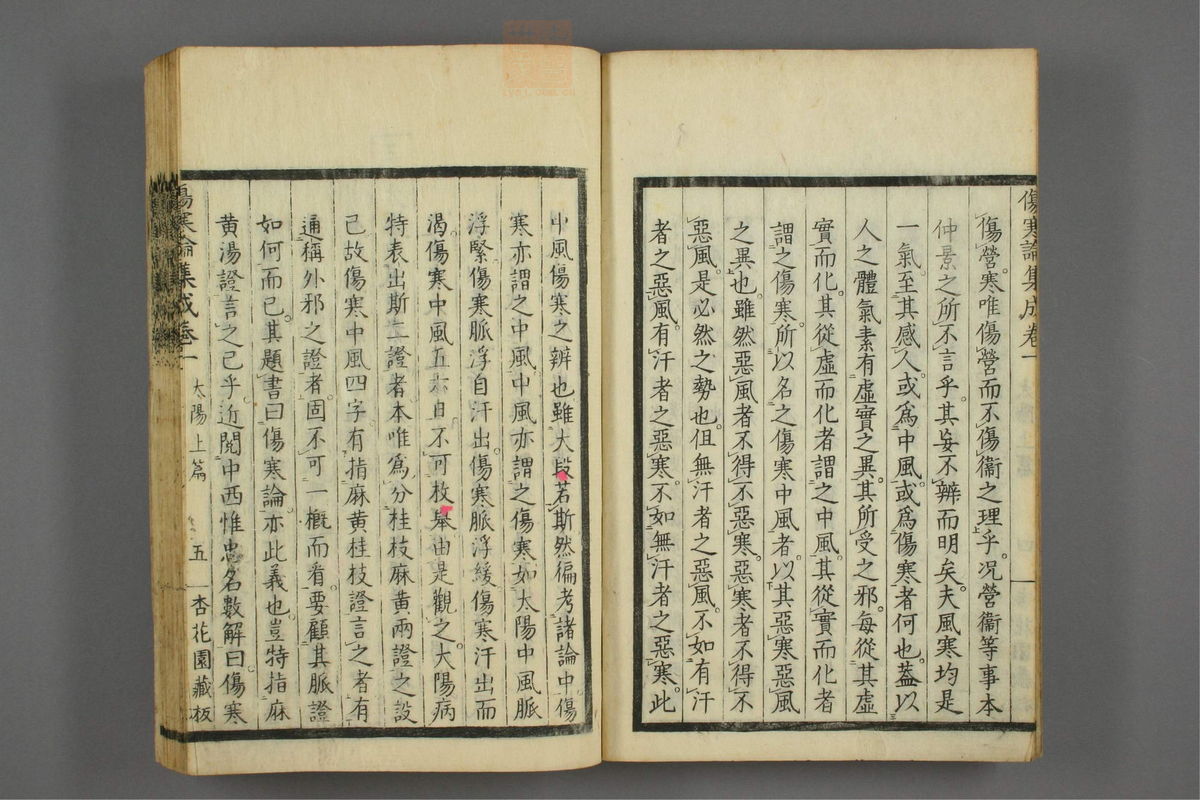 傷寒論集成卷一
傷營寒唯傷營而不傷衞之理乎況營衞等事本
仲景之所不言乎其妄不辨而明矣夫風寒均是
一氣至其感人或爲中風或爲傷寒者何也蓋以
人之體氣素有虛實之異其所受之邪每從其虛
實而化其從虛而化者謂之中風其從實而化者
謂之傷寒所以名之傷寒中風者以其惡寒惡風
之異也雖然惡風者不得不惡寒惡寒者不得不
惡風是必然之勢也但無汗者之惡風不如有汗
者之惡風有汗者之惡寒不如無汗者之惡寒此
中風傷寒之辨也雖大段若斯然徧考諸論中傷
寒亦謂之中風中風亦謂之傷寒如太陽中風脈
浮緊傷寒脈浮自汗出傷寒脈浮緩傷寒汗出而
渴傷寒中風五六日不可枚舉由是觀之大陽病
特表出斯二證者本唯爲分桂枝麻黄兩證之設
已故傷寒中風四字有指麻黄桂枝證言之者有
通稱外邪之證者固不可一概而看要顧其脈證
如何而已其題書曰傷寒論亦此義也豈特指麻
黄湯證言之已乎近閱中西惟忠名數解曰傷寒
傷寒論集成卷一 太陽上篇 五 杏花園藏板